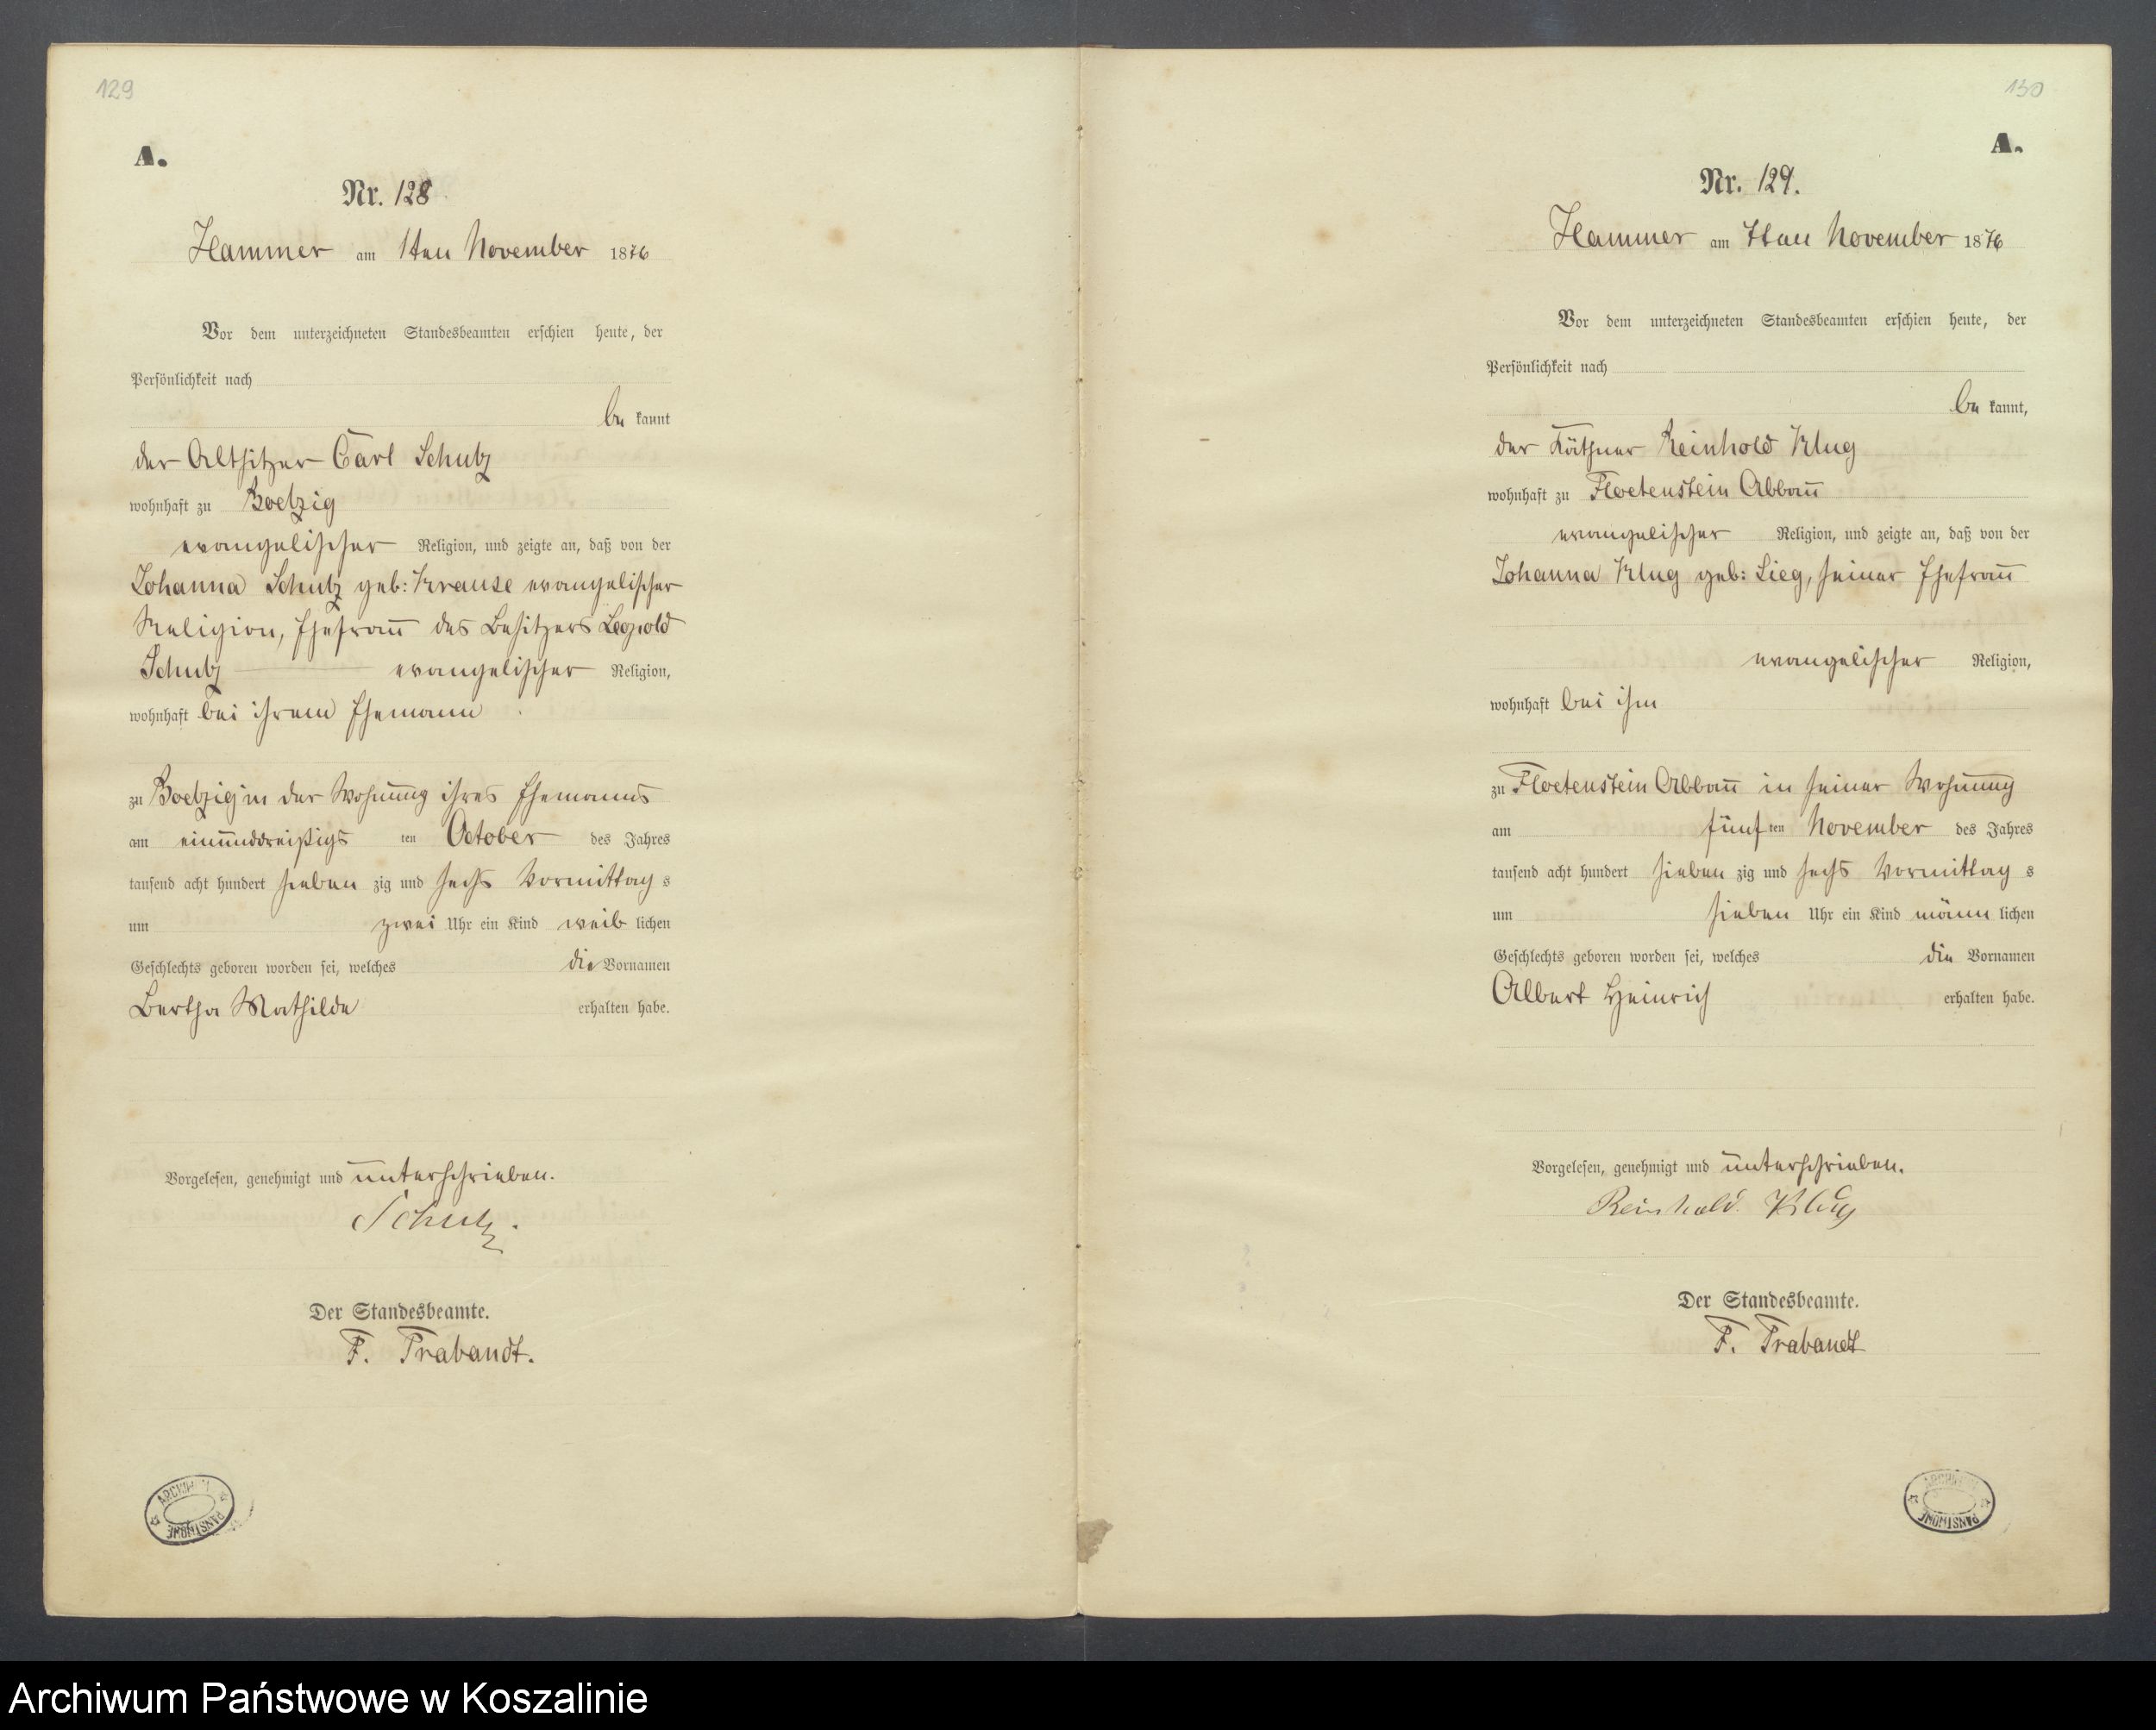 129
A.
Nr. 128
Hammer am 1ten November 1876
Vor dem unterzeichneten Standesbeamten erschien heute, der
Persönlichkeit nach
be kannt
der Altsitzer Carl Schulz
wohnhaft zu Boetzig
evangelischer Religion, und zeigte an, daß von der
Johanna Schulz geb: Krause evangelischer
Religion, Ehefrau des Besitzers Leopold
Schulz evangelischer Religion,
wohnhaft bei ihrem Ehemann
zu Boetzig in der Wohnung ihres Ehemanns
am einunddreißigs ten October des Jahres
tausend acht hundert sieben zig und sechs Vormittag s
um zwei Uhr ein Kind weib lichen
Geschlechts geboren worden sei, welches die Vornamen
Bertha Mathilde erhalten habe.
Vorgelesen, genehmigt und unterschrieben.
Schulz.
Der Standesbeamte.
F. Trabandt.
ARCHIWUM PAŃSTWOWE
130
A.
Nr. 129.
Hammer am 7ten November 1876
Vor dem unterzeichneten Standesbeamten erschien heute, der
Persönlichkeit nach
be kannt,
der Käthner Reinhold Klug
wohnhaft zu Floetenstein Abbau
evangelischer Religion, und zeigte an, daß von der
Johanna Klug geb: Lieg, seiner Ehefrau
evangelischer Religion,
wohnhaft bei ihm
zu Floetenstein Abbau in seiner Wohnung
am fünf ten November des Jahres
tausend acht hundert sieben zig und sechs Vormittag s
um sieben Uhr ein Kind männ lichen
Geschlechts geboren worden sei, welches die Vornamen
Albert Heinrich erhalten habe.
Vorgelesen, genehmigt und unterschrieben.
Reinhold Klug
Der Standesbeamte.
F. Trabandt
ARCHIWUM PAŃSTWOWE
Archiwum Państwowe w Koszalinie